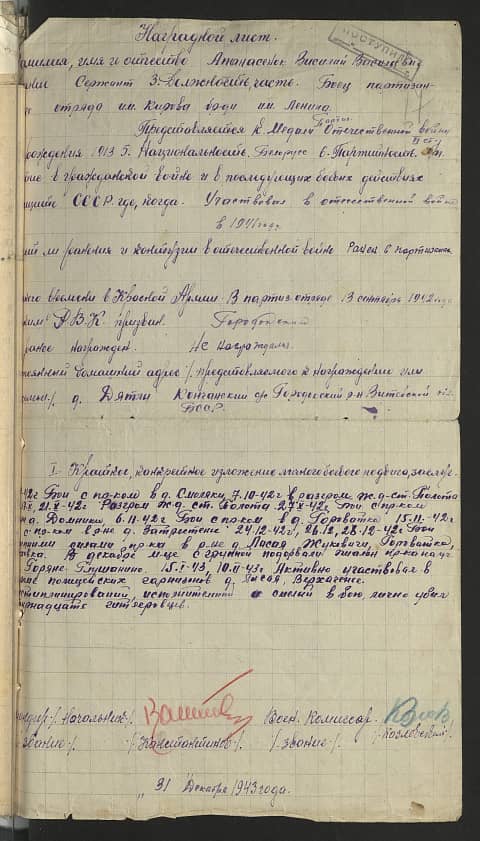 Наградной лист.
ПОСТУПИЛ
амилия, имя и отчество Апанасенок Василий Васильевич
ние Сержант 3. Должность, часть. Боец партизан-
отряда им. Кирова бриг им. Ленина.
Представляется к Медали Партиз. Отечественной войны
II ст.
рождения 1913 5. Национальность. Белорус 6. Партийность.
ие в гражданской войне и в последующих боевых действиях
ащите СССР где, когда. Участвовал в отечественной войне
в 1941 году
ли ранения и контузии в отечественной войне Ранен в партизанах
ого времени в Красной Армии. В партиз. отряде 13 сентября 1942 года
ким Р.В.К. призван. Городокский
ранее награжден. Не награждался
оянный домашний адрес /представляемого к награждению или
семьи/. д. Дятли с/с Городокский р-н Витебской обл.
БССР.
I. Краткое, конкретное изложение личного боевого подвига, заслуг.
42г Бои с пр-ком в д. Смоляки, 7.10-42г в разгром ж.д-ст. Болота
21.X-42г Разгром ж.д. ст. Болота 27.X-42г, Бой с пр-ком
д. Долники, 6.11-42г Бои с пр-ком в д. Горватка 15.11-42г
с пр-ком в р-не д. Затрепене 24.12-42г, 26.12, 28.12-42г Бои
силами пр-ка в р-не д. Лисая Жуковичи, Горватка,
В декабре м-це с группой подорвали эшалон пр-ка на уч.
Горяне. Глушанино. 15.I-43, 10.II-43г Активно участвовал в
полицейских гарнизонов д. Лисая, Верхалино.
исциплинированный, исполнительный и смелый в бою, лично убил
надцать гитлеровцев.
андир/ Начальник/. Воен. Комиссар.
/звание/. /Константинов/ /звание/. /Козловский/
„31 Декабря 1943 года.